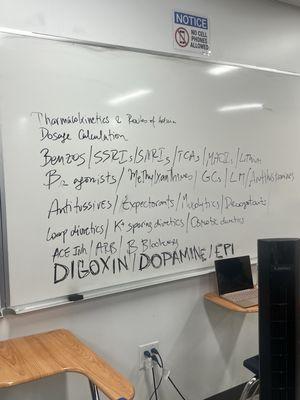 NOTICE
NO CELL
PHONES
ALLOWED
Pharmacokinetics & Routes of
Dosage Calculation
Benzos/SSRIs/SNRIs/TCAs/MAOIs/Lithium
B2 agonists/Methylxanthines/GCs/LM/Antihistamines
Antitussives/Expectorants/Mucolytics/Decongestants
Loop diuretics/K+ sparing diuretics/Osmotic diuretics
ACE Inh/ARB/B Blockers
DIGOXIN/DOPAMINE/EPI